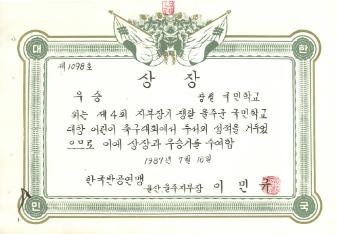 대 한
제 1098 호
상 장
우 승
창월 국민학교
위는 제4회 지부장기 쟁탈 울주군 국민학교
대항 어린이 축구대회에서 두서의 성적을 거두었
으므로 이에 상장과 우승기를 수여함
1987년 7월 10일
한국반공연맹
울산울주지부장 이 민
민 국